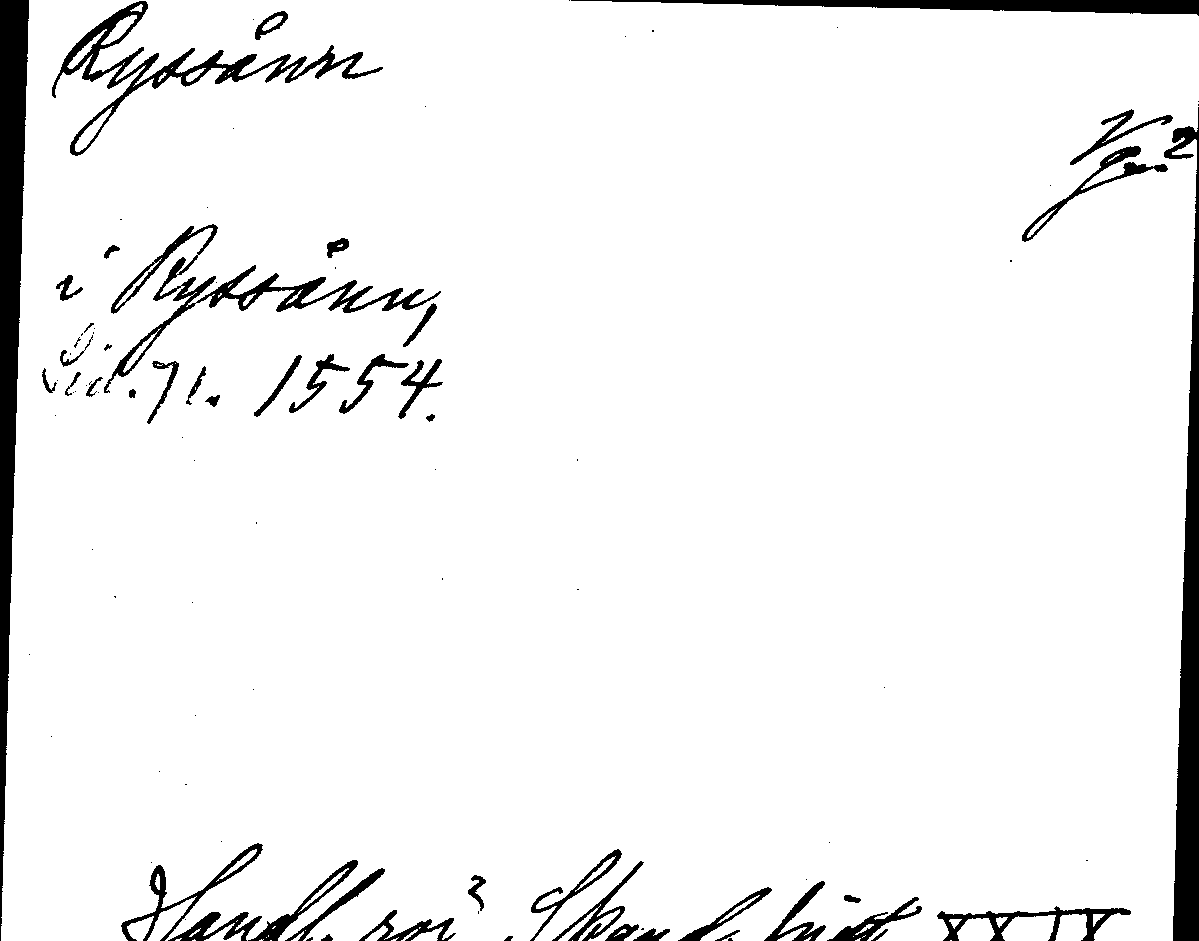 Ryssånn
Vg.?
i Ryssånn,
Sid. 71. 1554.
Handl. rör Skand. hist XXIX